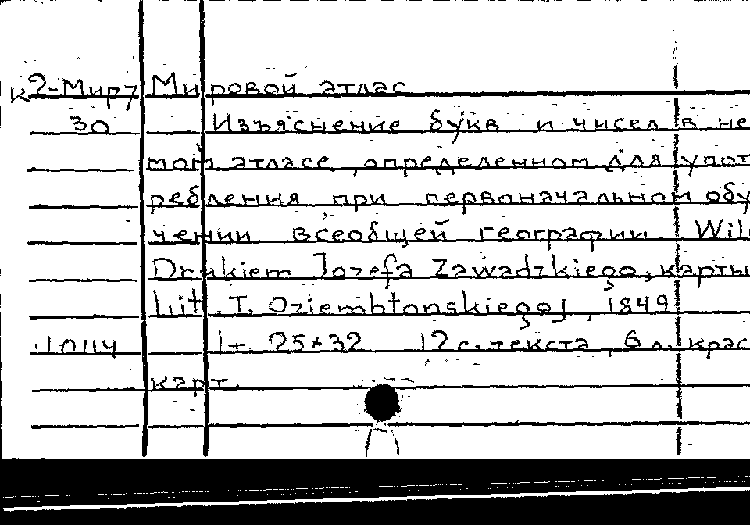 к2-Мир7 Мировой атлас
30 Изъяснение букв и чисел в не
мом атласе, определенном для упот
ребления при первоначальном обу
чении всеобщей географии Wil
Drukiem Jozefa Zawadzkiego, карты
Lit. T. Oziembłonskiego], 1849
10114 1т. 25*32 12 с. текста, 6 л. крас
карт.